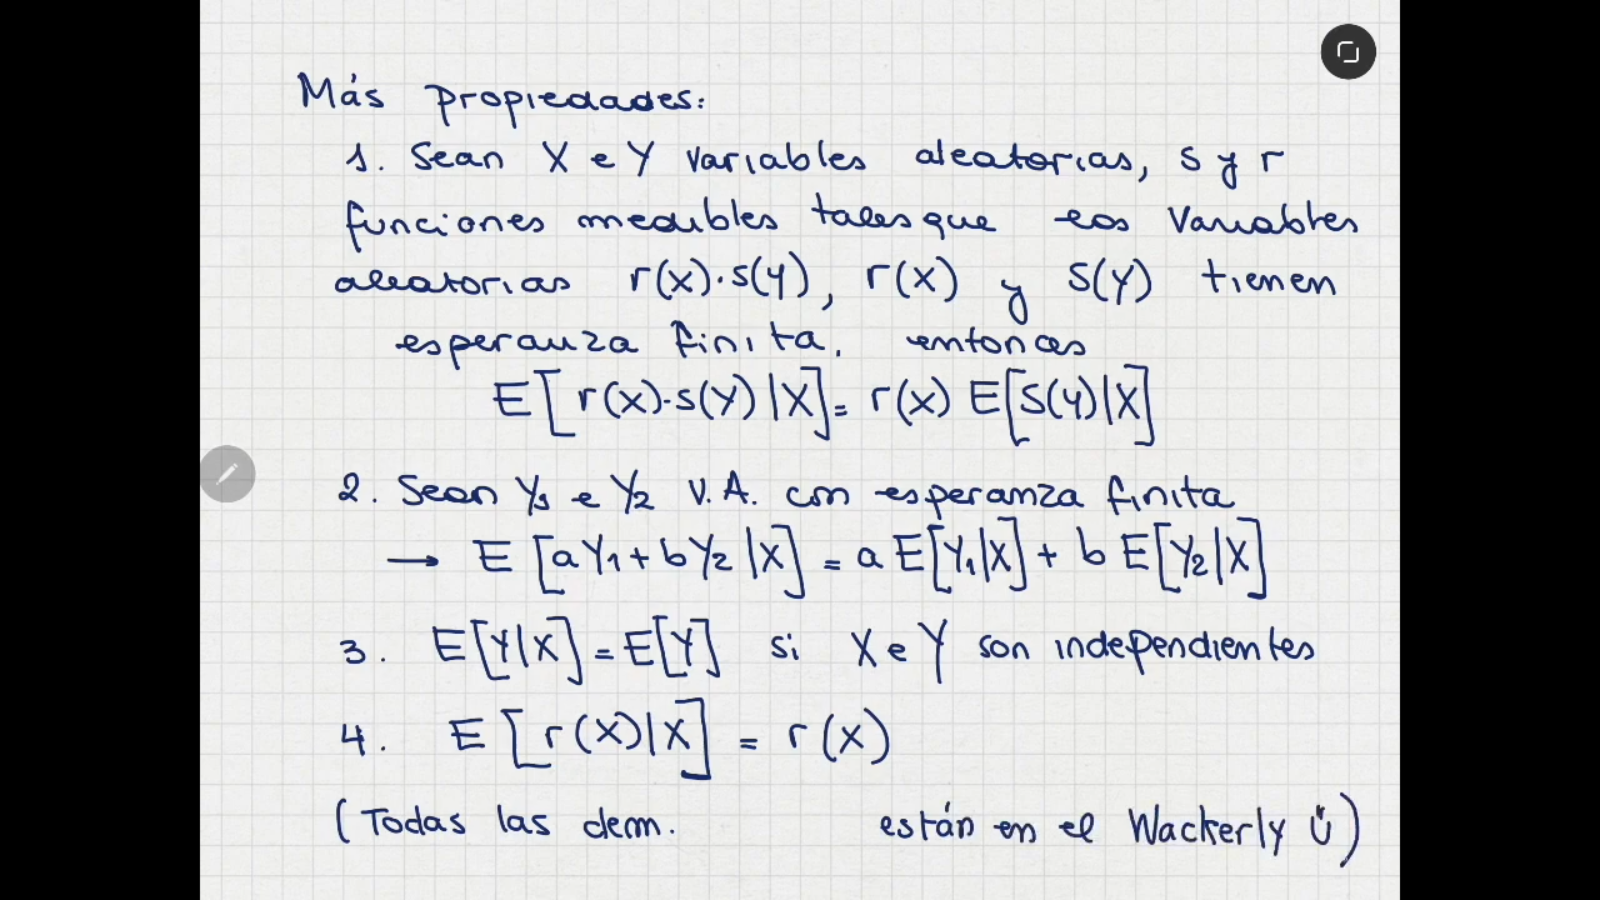 Más propiedades:
1. Sean X e Y variables aleatorias, s y r
funciones medibles tales que las variables
aleatorias r(X)·s(Y), r(X) y S(Y) tienen
esperanza finita. entonces
E[r(X)·s(Y)|X] = r(X) E[S(Y)|X]
2. Sean Y₁ e Y₂ V.A. con esperanza finita
→ E[aY₁ + bY₂|X] = a E[Y₁|X] + b E[Y₂|X]
3. E[Y|X] = E[Y] si X e Y son independientes
4. E[r(X)|X] = r(X)
(Todas las dem. están en el Wackerly Ü)